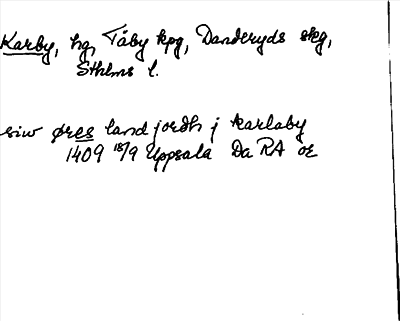 Karby, hg, Täby kpg, Danderyds skg,
Sthlms l.
siw øres land jordh j karlaby
1409 18/9 Uppsala Da RA or